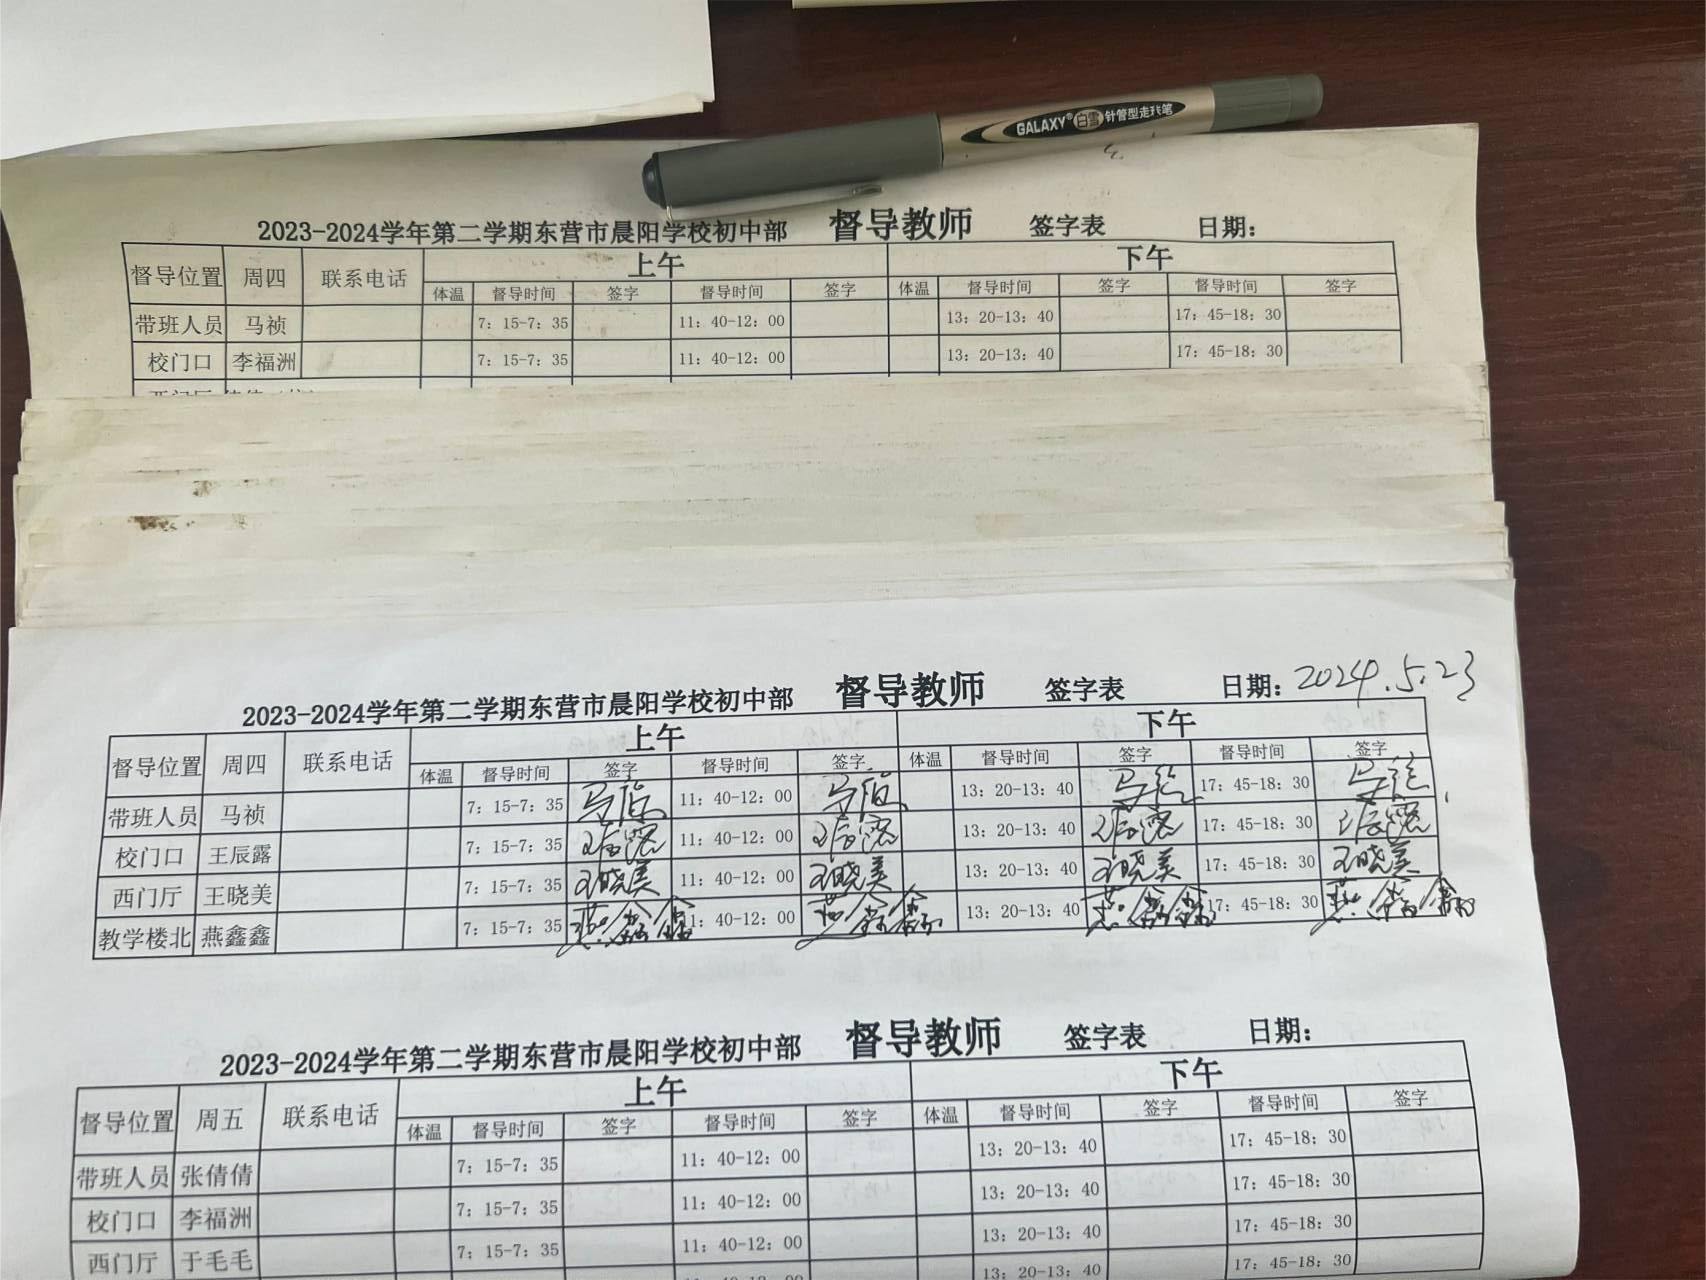 GALAXY® 白雪 针管型走珠笔
2023-2024学年第二学期东营市晨阳学校初中部 督导教师 签字表 日期：
督导位置 周四 联系电话 上午 下午
体温 督导时间 签字 督导时间 签字 体温 督导时间 签字 督导时间 签字
带班人员 马祯 7：15-7：35 11：40-12：00 13：20-13：40 17：45-18：30
校门口 李福洲 7：15-7：35 11：40-12：00 13：20-13：40 17：45-18：30
西门厅
2023-2024学年第二学期东营市晨阳学校初中部 督导教师 签字表 日期：2024.5.23
督导位置 周四 联系电话 上午 下午
体温 督导时间 签字 督导时间 签字 体温 督导时间 签字 督导时间 签字
带班人员 马祯 7：15-7：35 马祯 11：40-12：00 马祯 13：20-13：40 马祯 17：45-18：30 马祯
校门口 王辰露 7：15-7：35 王辰露 11：40-12：00 王辰露 13：20-13：40 王辰露 17：45-18：30 王辰露
西门厅 王晓美 7：15-7：35 王晓美 11：40-12：00 王晓美 13：20-13：40 王晓美 17：45-18：30 王晓美
教学楼北 燕鑫鑫 7：15-7：35 燕鑫鑫 11：40-12：00 燕鑫鑫 13：20-13：40 燕鑫鑫 17：45-18：30 燕鑫鑫
2023-2024学年第二学期东营市晨阳学校初中部 督导教师 签字表 日期：
督导位置 周五 联系电话 上午 下午
体温 督导时间 签字 督导时间 签字 体温 督导时间 签字 督导时间 签字
带班人员 张倩倩 7：15-7：35 11：40-12：00 13：20-13：40 17：45-18：30
校门口 李福洲 7：15-7：35 11：40-12：00 13：20-13：40 17：45-18：30
西门厅 于毛毛 7：15-7：35 11：40-12：00 13：20-13：40 17：45-18：30
11：40-12：00 13：20-13：40 17：45-18：30